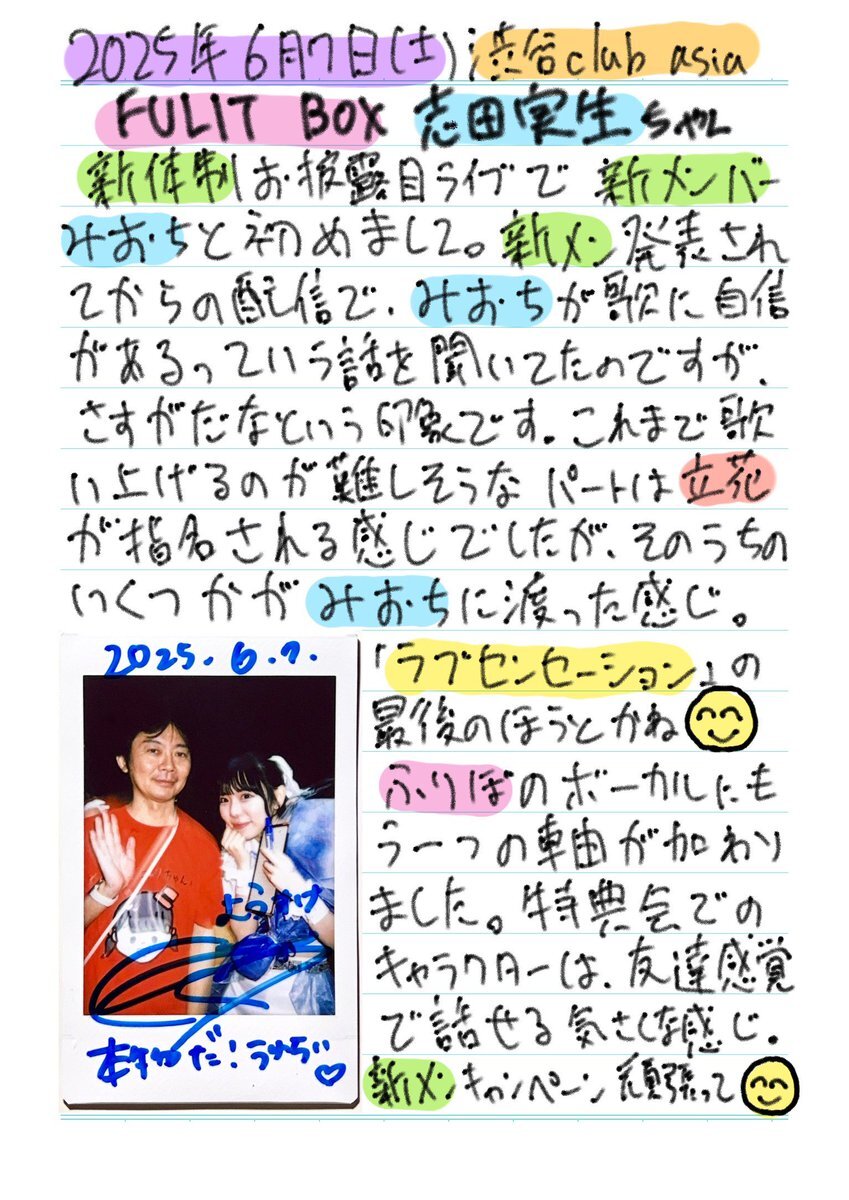 2025年6月7日(土)渋谷club asia
FULIT BOX 志田実生ちゃん
新体制お披露目ライブで 新メンバー
みおちと初めまして。新メン発表され
てからの配信で、みおちが歌に自信
があるっていう話を聞いてたのですが、
さすがだなという印象です。これまで歌
い上げるのが難しそうなパートは立花
が指名される感じでしたが、そのうちの
いくつかがみおちに渡った感じ。
「ラブセンセーション」の
最後のほうとかね
ふりぼのボーカルにも
う一つの軸が加わり
ました。特典会での
キャラクターは、友達感覚
で話せる気さくな感じ。
新メンキャンペーン頑張って
2025.6.7.
ようすけ
本物だ!うれちい